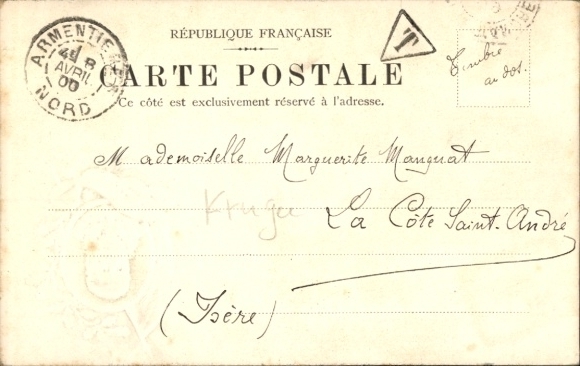 RÉPUBLIQUE FRANÇAISE
T
CARTE POSTALE
Ce côté est exclusivement réservé à l'adresse.
ARMENTIERES
8
AVRIL
00
NORD
Timbre
au dos.
Mademoiselle Marguerite Manguat
La Côte Saint-André
(Isère)